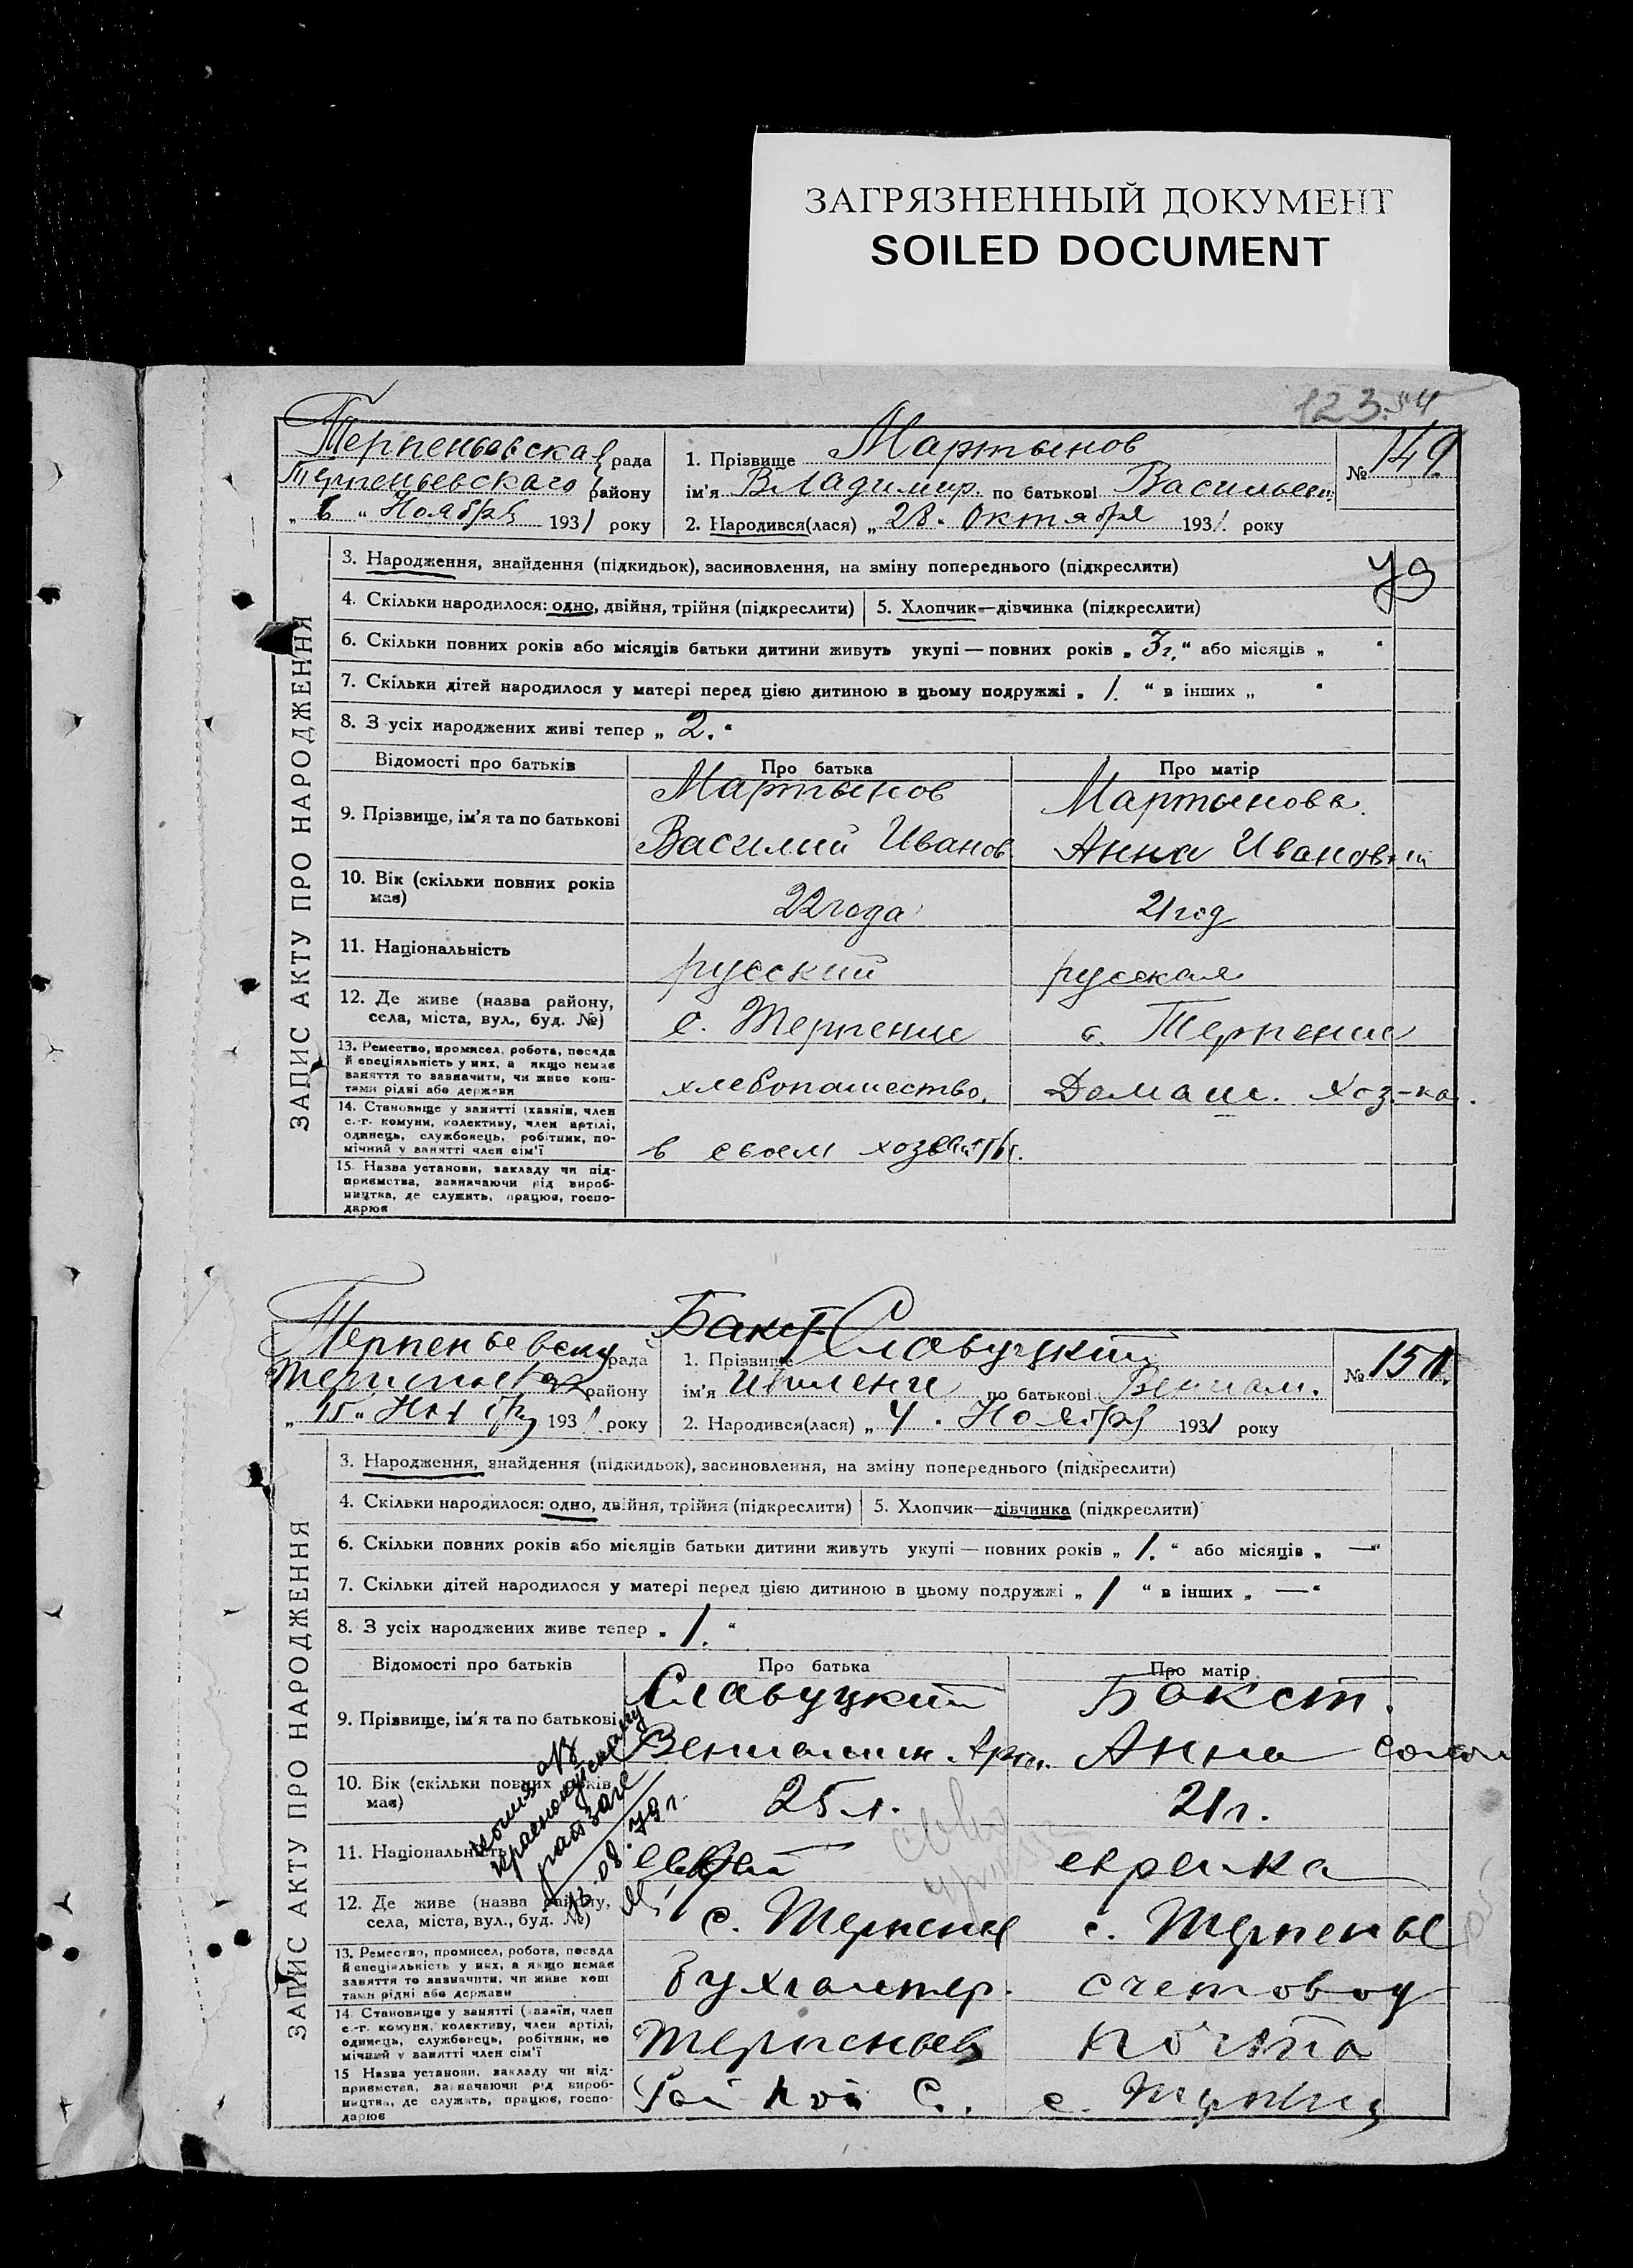 ЗАГРЯЗНЕННЫЙ ДОКУМЕНТ
SOILED DOCUMENT
123.
ЗАПИС АКТУ ПРО НАРОДЖЕННЯ
Терпеньевская рада
Терпеньевскаго району
„ 6 “ Ноября 1931 року
1. Прізвище Мартынов
ім'я Владимир. по батькові Васильев
2. Народився(лася) „ 28. Октября 1931. року
№ 149.
3. Народження, знайдення (підкидьок), засиновлення, на зміну попереднього (підкреслити)
4. Скільки народилося: одно, двійня, трійня (підкреслити)
5. Хлопчик—дівчинка (підкреслити)
6. Скільки повних років або місяців батьки дитини живуть укупі — повних років „ 3 г. “ або місяців „ “
7. Скільки дітей народилося у матері перед цією дитиною в цьому подружжі „ 1. “ в інших „ “
8. З усіх народжених живі тепер „ 2. “
Відомості про батьків Про батька Про матір
9. Прізвище, ім'я та по батькові
Мартынов Мартынова.
Василий Иванов. Анна Ивановн
10. Вік (скільки повних років має)
22 года 21 год
11. Національність
русский русская
12. Де живе (назва району,
села, міста, вул., буд. №)
с. Терпение с. Терпение
13. Ремество, промисел, робота, посада
й спеціяльність у них, а якщо немає
заняття то зазначити, чи живе кош-
тами рідні або держави
хлебопашество. Домаш. хоз-ка.
14. Становище у занятті (хазяїн, член
с.-г. комуни, колективу, член артілі,
одинець, службовець, робітник, по-
мічний у занятті член сім'ї
в своем
15. Назва установи, закладу чи під-
приємства, зазначаючи рід вироб-
ництва, де служить, працює, госпо-
дарює
ЗАПИС АКТУ ПРО НАРОДЖЕННЯ
рада
району
„ 15 “ 1931 року
Бакст
1. Прізвище Славуцкий
ім'я по батькові Вениам.
2. Народився(лася) „ 4. Ноября 1931 року
№ 150.
3. Народження, знайдення (підкидьок), засиновлення, на зміну попереднього (підкреслити)
4. Скільки народилося: одно, двійня, трійня (підкреслити)
5. Хлопчик—дівчинка (підкреслити)
6. Скільки повних років або місяців батьки дитини живуть укупі — повних років „ 1. “ або місяців „ — “
7. Скільки дітей народилося у матері перед цією дитиною в цьому подружжі „ 1 “ в інших „ — “
8. З усіх народжених живе тепер „ 1. “
Відомості про батьків Про батька Про матір
9. Прізвище, ім'я та по батькові
Славуцкий Бакст.
Вениамин Анна
10. Вік (скільки повних років має)
25 л. 21 г.
11. Національність
еврейка
12. Де живе (назва району,
села, міста, вул., буд. №)
с. Терпение с. Терпенье
13. Ремество, промисел, робота, посада
й спеціяльність у них, а якщо немає
заняття то зазначити, чи живе кош
тами рідні або держави
бухгалтер. счетовод
14. Становище у занятті (хазяїн, член
с.-г. комуни, колективу, член артілі,
одинець, службовець, робітник, по
мічний у занятті член сім'ї
почта
15 Назва установи, закладу чи під-
приємства, зазначаючи рід вироб-
ництва, де служить, працює, госпо-
дарює